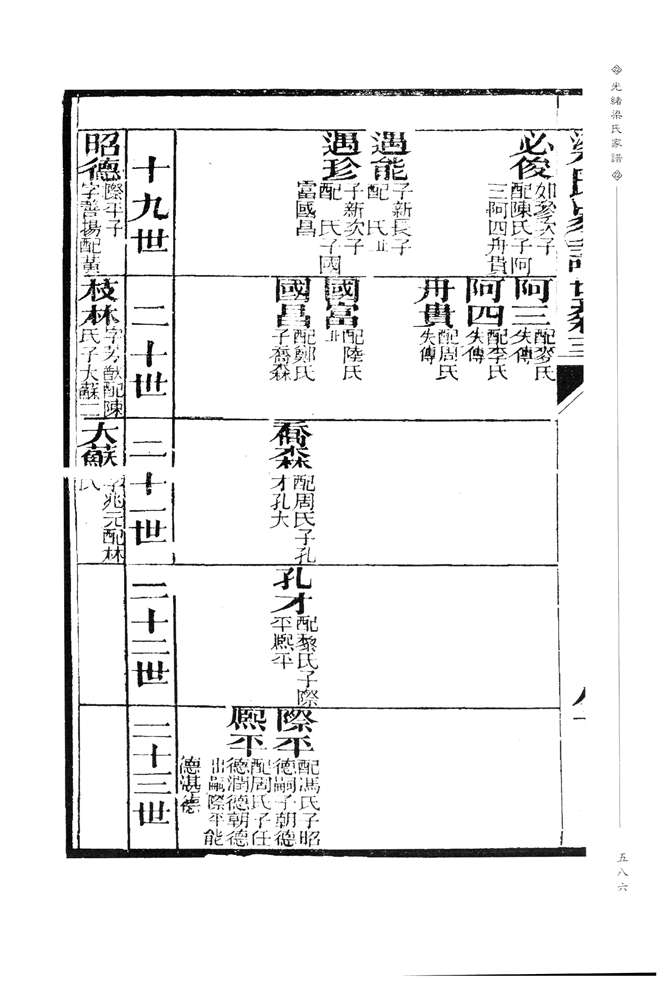 光緒梁氏家譜
五八六
梁氏家譜世系三
必俊
如參次子
配陳氏子阿
三阿四冉貴
遇能
子新長子
配 氏止
遇珍
子新次子
配 氏子國
富國昌
阿三
配麥氏
失傳
阿四
配李氏
失傳
冉貴
配周氏
失傳
國富
配陸氏
止
國昌
配鄭氏
子喬森
喬森
配周氏子孔
才孔大
孔才
配黎氏子際
平熙平
際平
配馮氏子昭
德嗣子朝德
熙平
配周氏子任
德澗德朝德
出嗣際平能
德湛德
十九世
二十世
二十一世
二十二世
二十三世
昭德
際平子
字善揚配董
枝林
配陳
氏子大蘇二
大蘇
字兆元配林
氏